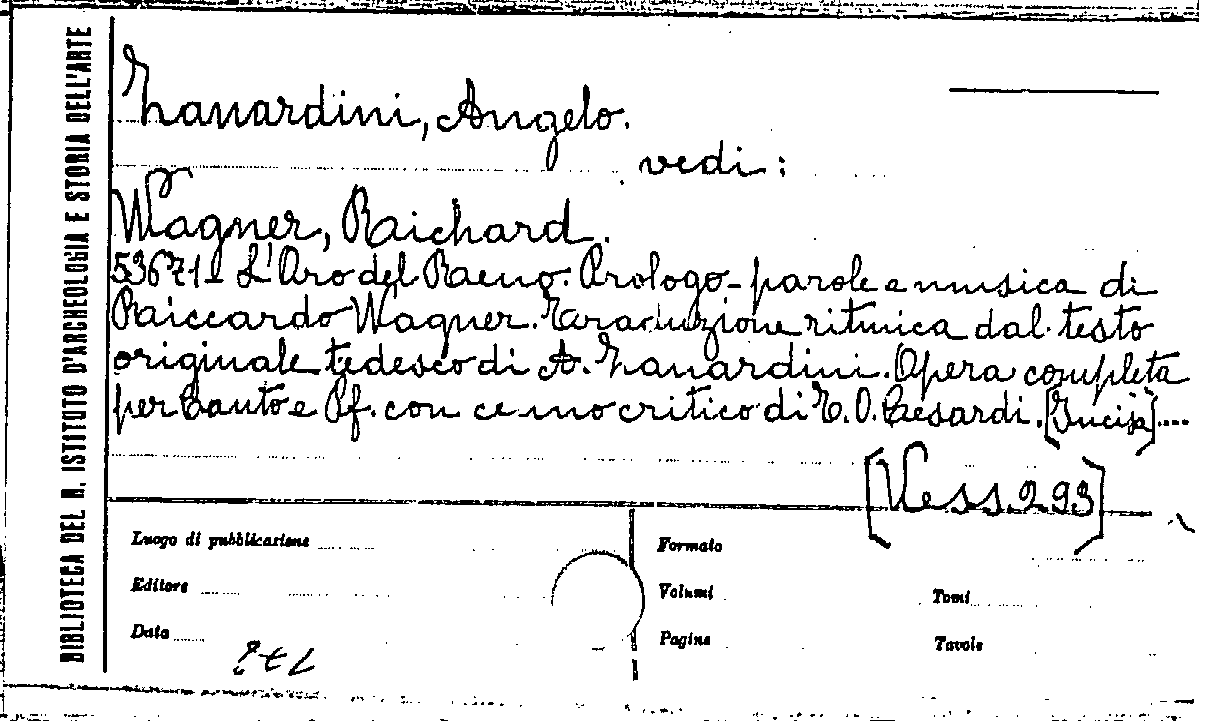 BIBLIOTECA DEL R. ISTITUTO D'ARCHEOLOGIA E STORIA DELL'ARTE
Zanardini, Angelo.
vedi:
Wagner, Richard.
53671- L'Oro del Reno. Prologo - parole e musica di
Riccardo Wagner. Traduzione ritmica dal testo
originale tedesco di A. Zanardini. Opera completa
per Canto e Pf. con cenno critico di E. O. Cesardi. [Incisa]....
[Vess. 293]
Luogo di pubblicazione
Formato
Editore
Volumi
Tomi
Data
Pagine
Tavole